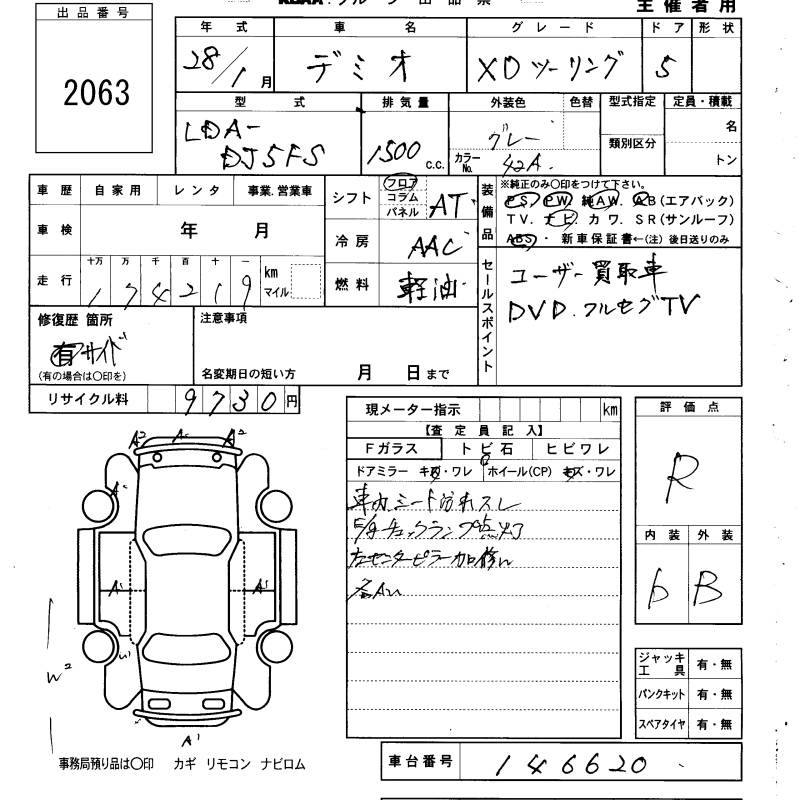 出品番号
主催者用
2063
年式 車名 グレード ドア 形状
28/1月 デミオ XDツーリング 5
型式 排気量 外装色 色替 型式指定 定員・積載
LDA-DJ5FS 1500 c.c. グレー カラーNo. 42A 類別区分 名 トン
車歴 自家用 レンタ 事業.営業車
シフト フロア コラム パネル AT
装備品 ※純正のみ○印をつけて下さい。
PS PW 純AW. AB(エアバッグ)
TV. ナビ カワ. SR(サンルーフ)
ABS・ 新車保証書←(注) 後日送りのみ
車検 年 月
冷房 AAC
走行 十万 万 千 百 十 一 km マイル
174219
燃料 軽油
セールスポイント
ユーザー買取車
DVD.フルセグTV
修復歴 箇所
有 サイド
(有の場合は○印を)
注意事項
名変期日の短い方 月 日まで
リサイクル料 9730円
現メーター指示 km
【査定員記入】
Fガラス トビ石 ヒビワレ
ドアミラー キズ・ワレ ホイール(CP) キズ・ワレ
車内シート汚れスレ
チェックランプ点灯
左センターピラー加修
評価点
R
内装 外装
6 B
A2 A2
A'
A' A'
W2
A'
ジャッキ工具 有・無
パンクキット 有・無
スペアタイヤ 有・無
事務局預り品は○印 カギ リモコン ナビロム
車台番号 146620